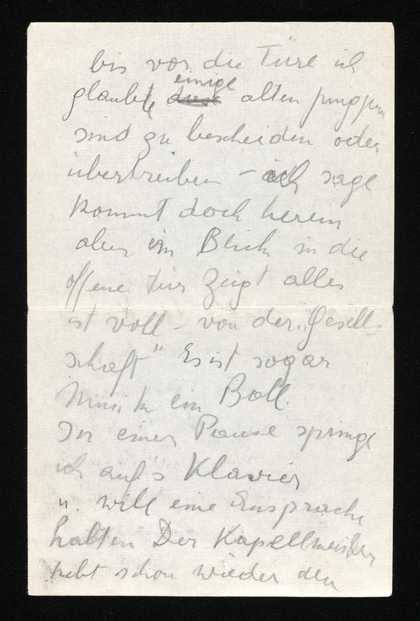 bis vor die Türe ich
glaubte einige alten
sind zu bescheiden oder
übertreiben – ich sage
kommt doch herein
aber ein Blick in die
offene Tür zeigt alles
ist voll – von der „Gesell-
schaft" Es ist sogar
Musik ein Ball.
In einer Pause springe
ich auf's Klavier
u. will eine Ansprache
halten Der Kapellmeister
hebt schon wieder den